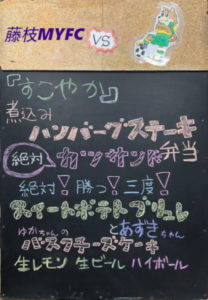 藤枝MYFC VS
『すこやか』
煮込み
ハンバーグステーキ
絶対 カツサンド 弁当
絶対！勝つ！三度！
スイートポテトブリュレ
ゆかちゃんの とあずきちゃん
バスクチーズケーキ
生レモン 生ビール ハイボール